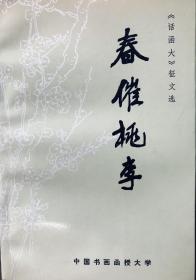 《话函大》征文选
春催桃李
中国书画函授大学